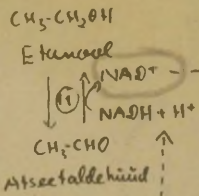 CH₃-CH₂OH
Etanool
NAD⁺
①
NADH + H⁺
CH₃-CHO
Atseetaldehüüd